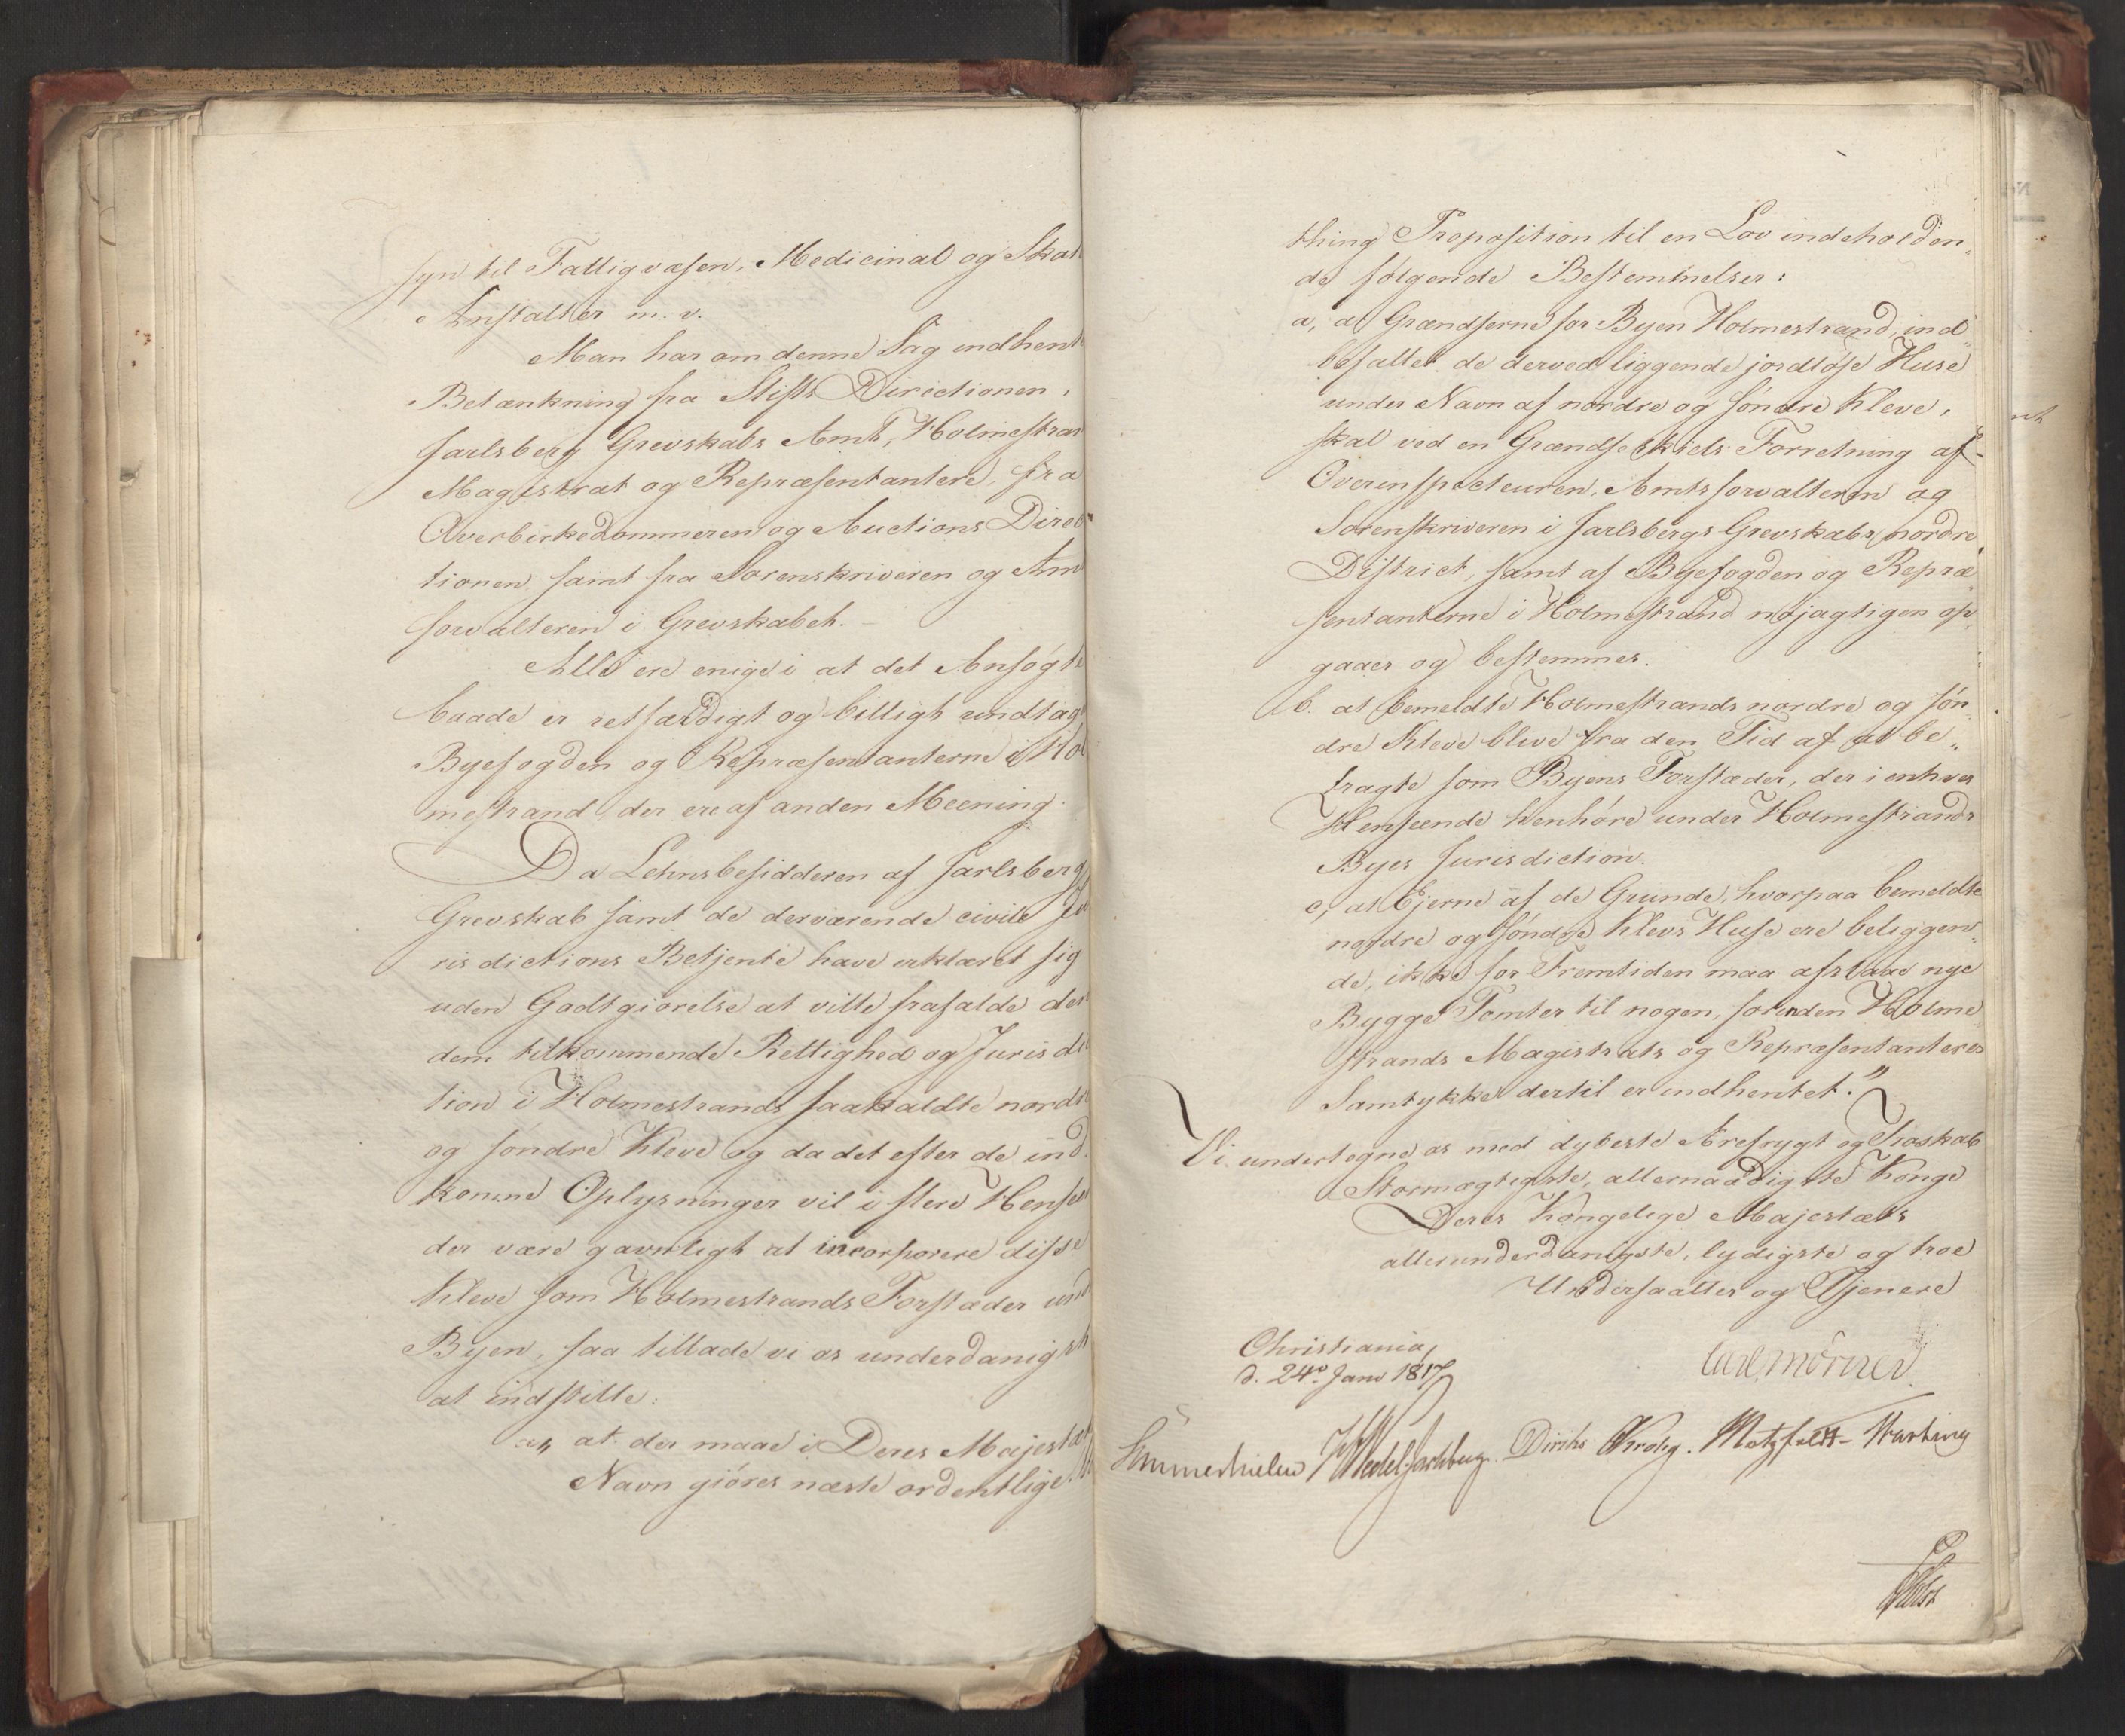 syn til Fattigvæsen, Medicinal og Skat
Anstalter m. v.
Man har om denne Sag indhent
Betænkning fra Stifts Directionen,
Jarlsberg Grevskabs Amt, Holmestran
Magistrat og Repræsentantere, fra
Overbirkedommeren og Auctions Direc
tionen samt fra Sorenskriveren og Am
forvalteren i Grevskabet. –
Alle ere enige i at det Ansøgte
baade er retfærdigt og billigt undtag
Byefogden og Repræsentanterne i Hol
mestrand der ere af anden Meening.
Da Lehnsbesidderen af Jarlsberg
Grevskab samt de derværende civile Ju
risdictions Betjente have erklæret sig
uden Godtgiørelse at ville frafalde den
dem tilkommende Rettighed og Jurisdic
tion i Holmestrands saakaldte nordre
og søndre Kleve og da det efter de ind
komne Oplysninger vil i flere Hensee
der være gavnligt at incorporere disse
Kleve som Holmestrands Forstæder und
Byen, saa tillade vi os underdanigst
at indstille:
at der maae i Deres Majestæt
Navn giøres næste ordentlige
thing Proposition til en Lov indeholden„
de følgende Bestemmelser:
a, at Grændserne for Byen Holmestrand, ind„
befattet de derved liggende jordløse Huse
under Navn af nordre og søndre Kleve,
skal ved en Grændse Skiels Forretning af
Overinspecteuren, Amtsforvalteren og
Sorenskriveren i Jarlsbergs Grevskabs nordre
District, samt af Byefogden og Repræ
sentanterne i Holmestrand nøjagtigen op„
gaaes og bestemmes.
b. at bemeldte Holmestrands nordre og søn„
dre Kleve blive fra den Tid af at be„
tragte som Byens Forstæder, der i enhver
Henseende henhøre under Holmestrands
Byes Jurisdiction.
c, at Ejerne af de Grunde, hvorpaa bemeldte
nordre og søndre Klevs Huse ere beliggen„
de, ikke for Fremtiden maa afstaae nye
Bygge Tomter til nogen, forinden Holme
strands Magistrats og Repræsentanteres
Samtykke dertil er indhentet."
Vi undertegne os med dybeste Ærefrygt og Troskab
Stormægtigste, allernaadigste Konge
Deres Kongelige Majestæts
allerunderdanigste, lydigste og troe
Undersaatter og Tjenere
Christiania,
d. 24de Janv 1817
Carl Mörner.
Sommerhielm HWedel-Jarlsberg. Diriks Krohg. Motzfeldt